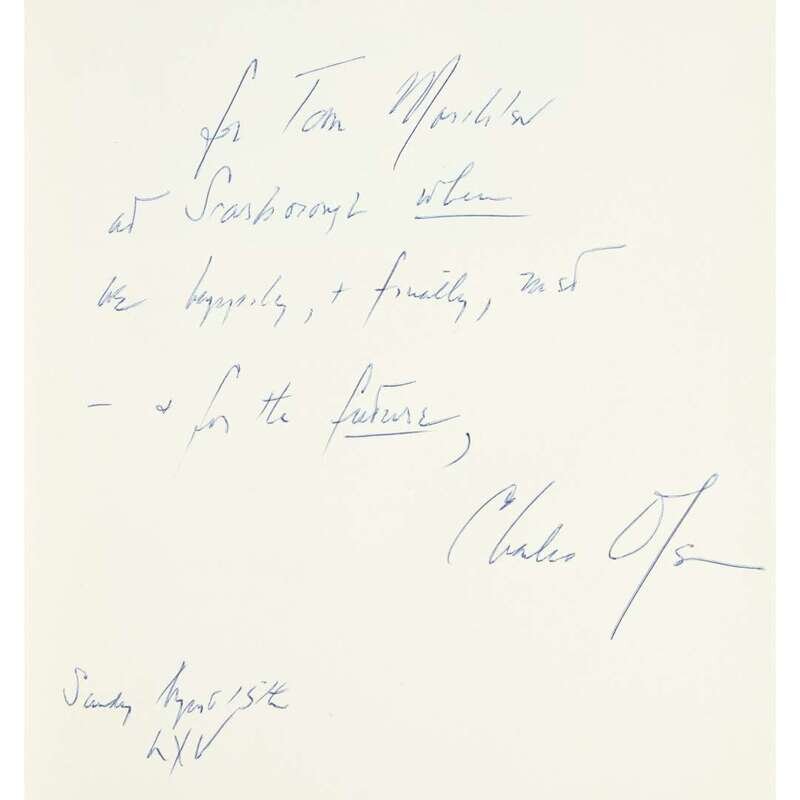 for Tom Maschler
at Scarborough when
we happily, + finally, met
– & for the future,
Charles Olson
Sunday August 15th
LXV